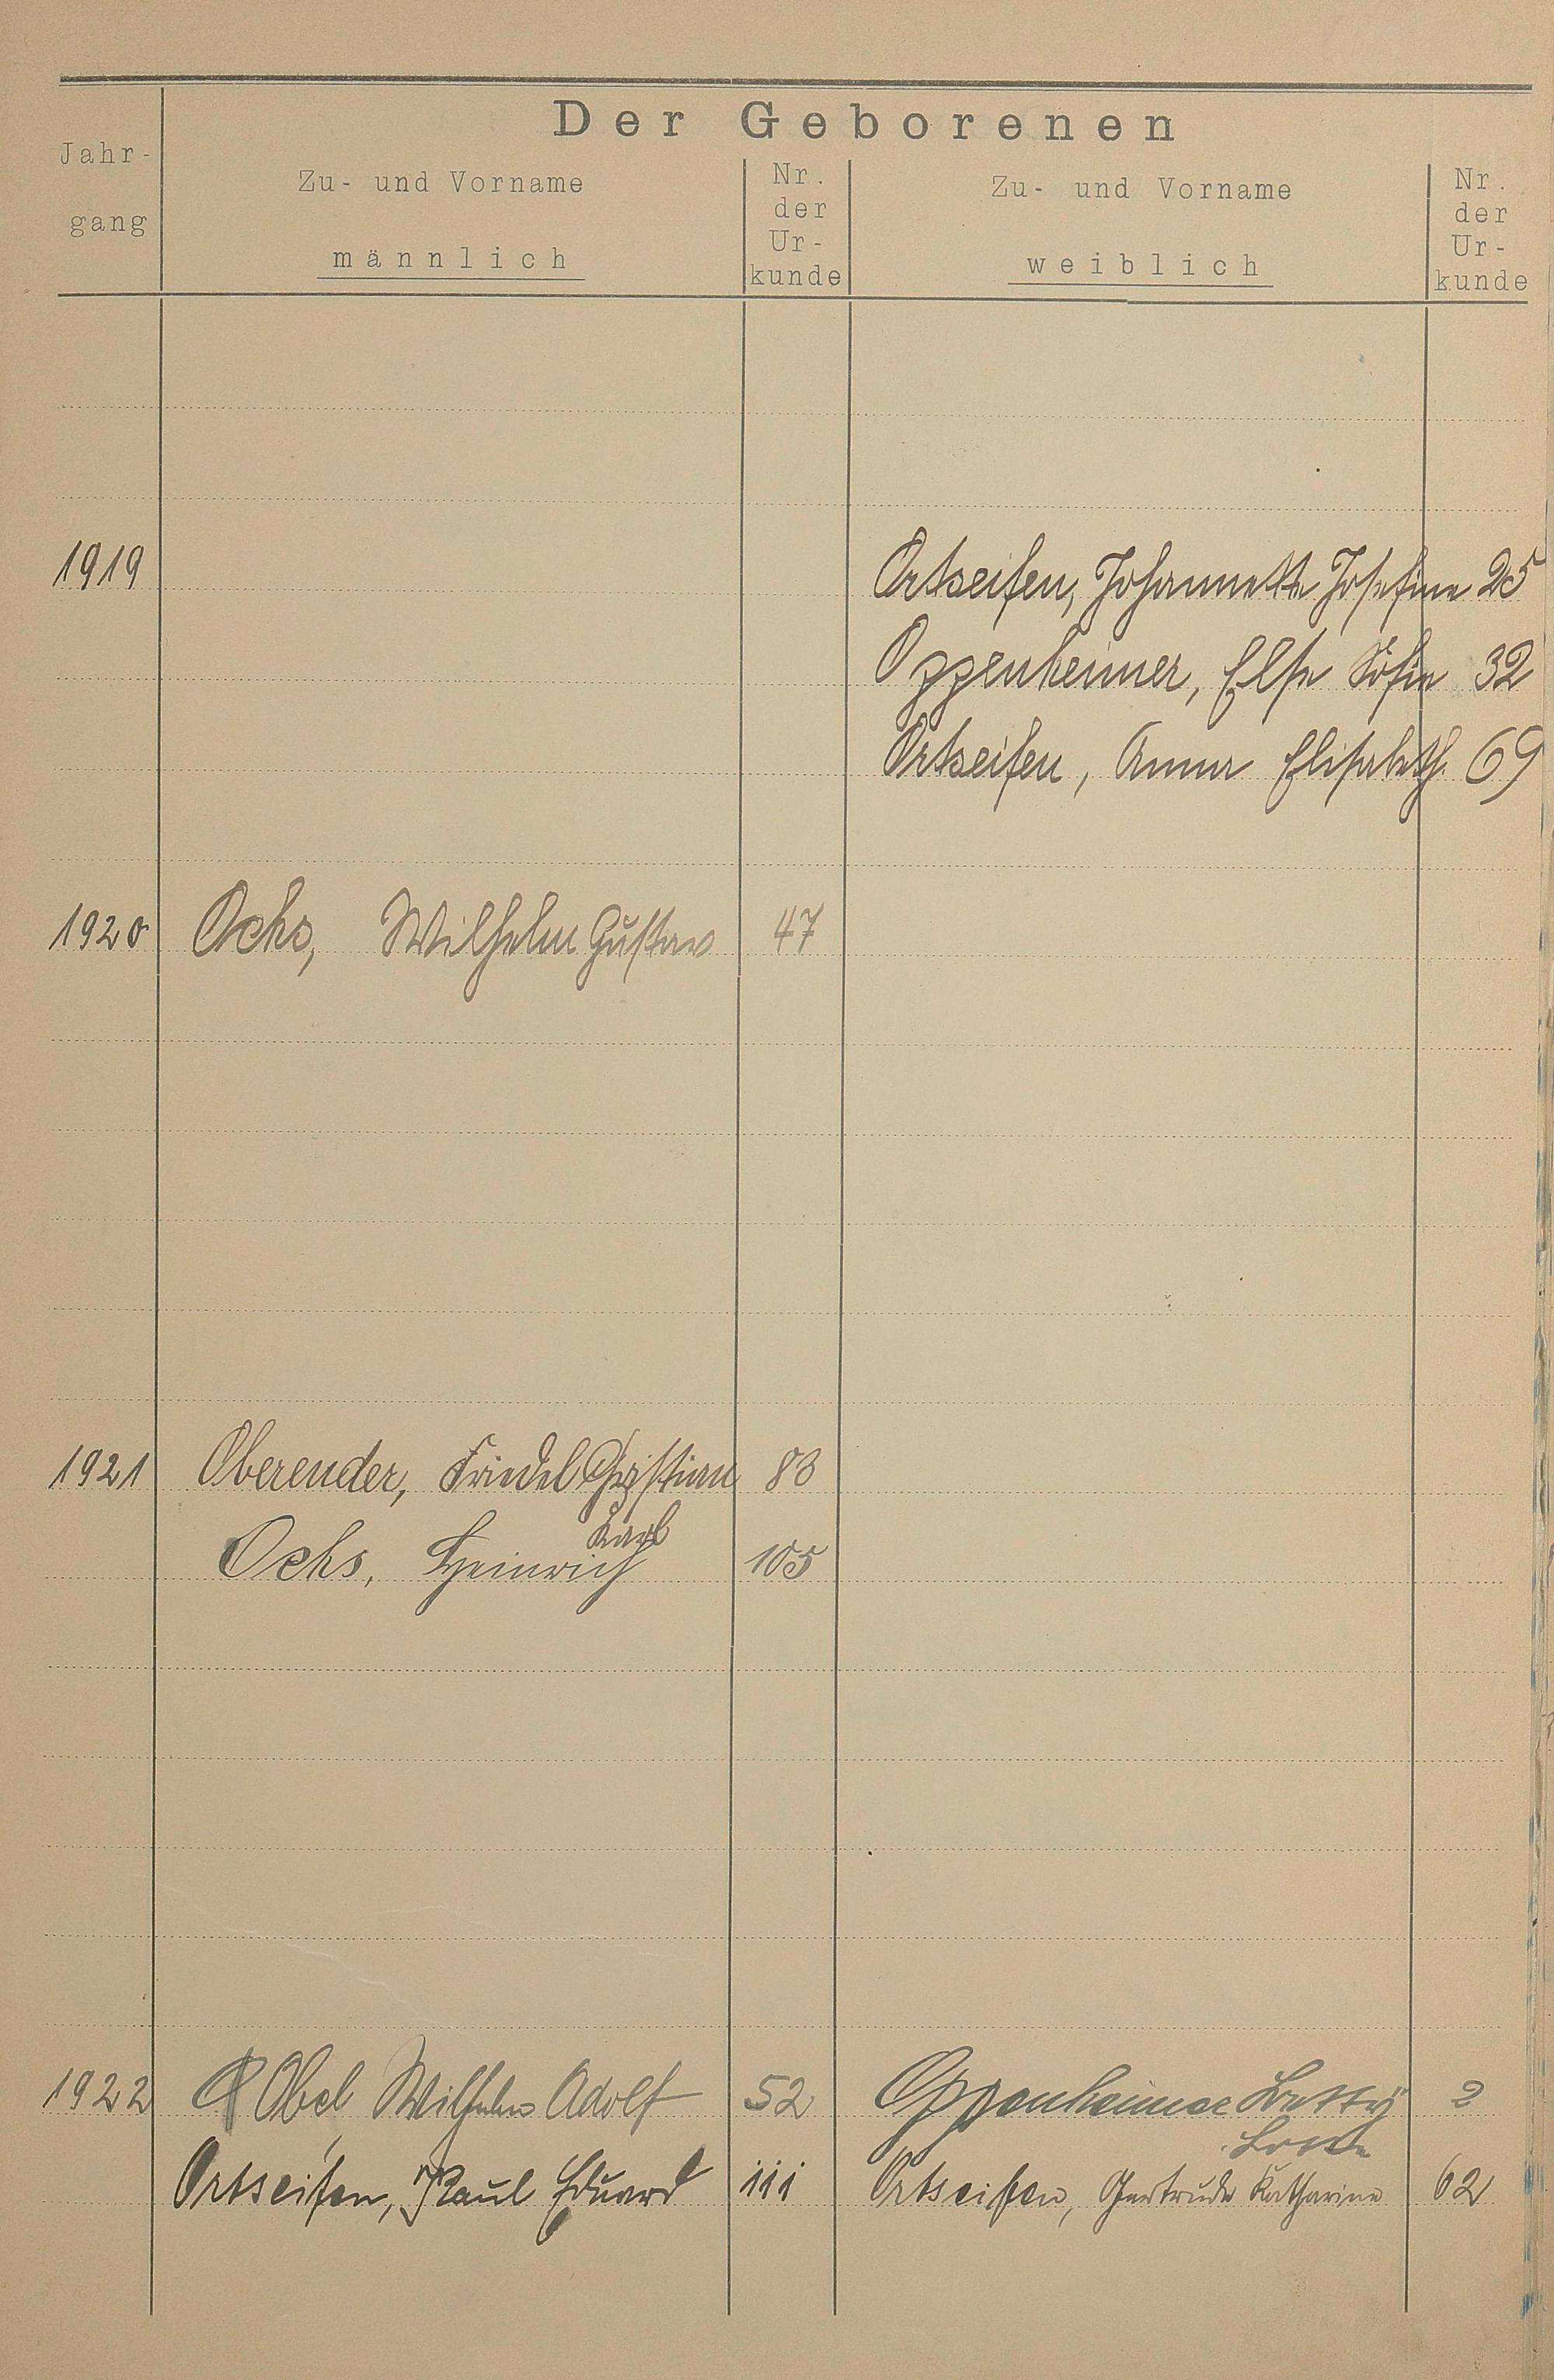 Der Geborenen
Jahr-
gang
Zu- und Vorname
männlich
Nr.
der
Ur-
kunde
Zu- und Vorname
weiblich
Nr.
der
Ur-
kunde
1919 Ortseifen, Johannette Josefine 25
Oppenheimer, Else Sofie 32
Ortseifen, Anna Elisabeth 69
1920 Ochs, Wilhelm Gustav 47
1921 Oberender, Friedel Christian 83
Karl
Ochs, Heinrich 105
1922 Obel Wilhelm Adolf 52 Oppenheimer 2
Ortseifen, Paul Eduard 111 Ortseifen, Gertrude Katharine 62